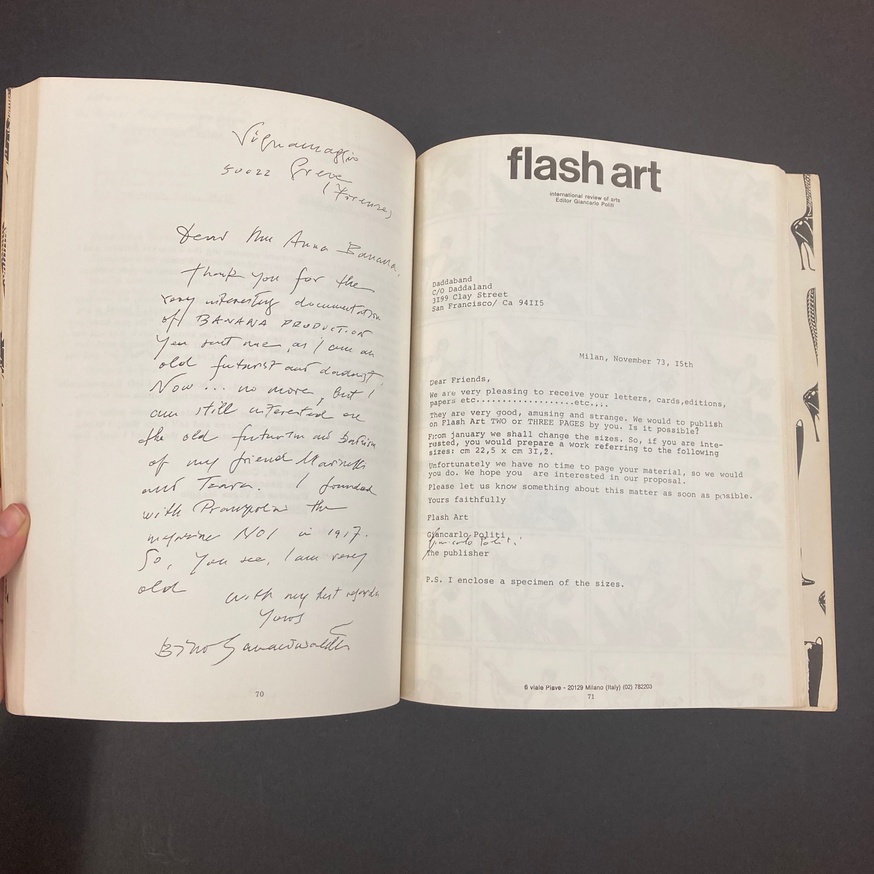 Vignamaggio
50022 Greve
(Firenze)
Dear Mrs Anna Banana,
thank you for the
very interesting documentation
of BANANA PRODUCTION
you sent me, as I am an
old futurist and dadaist.
Now... no more, but I
am still interested on
the old futurism and dadaism
of my friend Marinetti
and Tzara. I founded
with Prampolini the
magazine NOI in 1917.
So, you see, I am very
old
with my best regards
Yours
70
flash art
international review of arts
Editor Giancarlo Politi
Daddaband
C/O Daddaland
3I99 Clay Street
San Francisco/ Ca 94II5
Milan, November 73, I5th
Dear Friends,
We are very pleasing to receive your letters, cards,editions,
papers etc...................etc....
They are very good, amusing and strange. We would to publish
on Flash Art TWO or THREE PAGES by you. Is it possible?
From january we shall change the sizes. So, if you are inte-
rusted, you would prepare a work referring to the following
sizes: cm 22,5 x cm 3I,2.
Unfortunately we have no time to page your material, so we would
you do. We hope you  are interested in our proposal.
Please let us know something about this matter as soon as possible.
Yours faithfully
Flash Art
Giancarlo Politi
Giancarlo Politi
the publisher
P.S. I enclose a specimen of the sizes.
6 viale Piave - 20129 Milano (Italy) (02) 782203
71